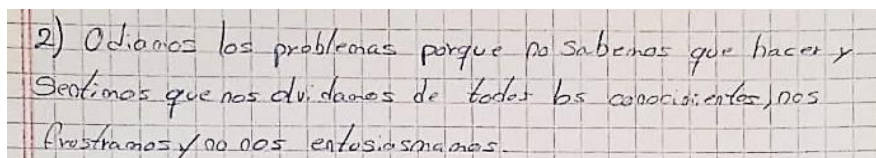 2) Odiamos los problemas porque no sabemos que hacer y
Sentimos que nos olvidamos de todos los conocimientos, nos
frustramos y no nos entusiasmamos.